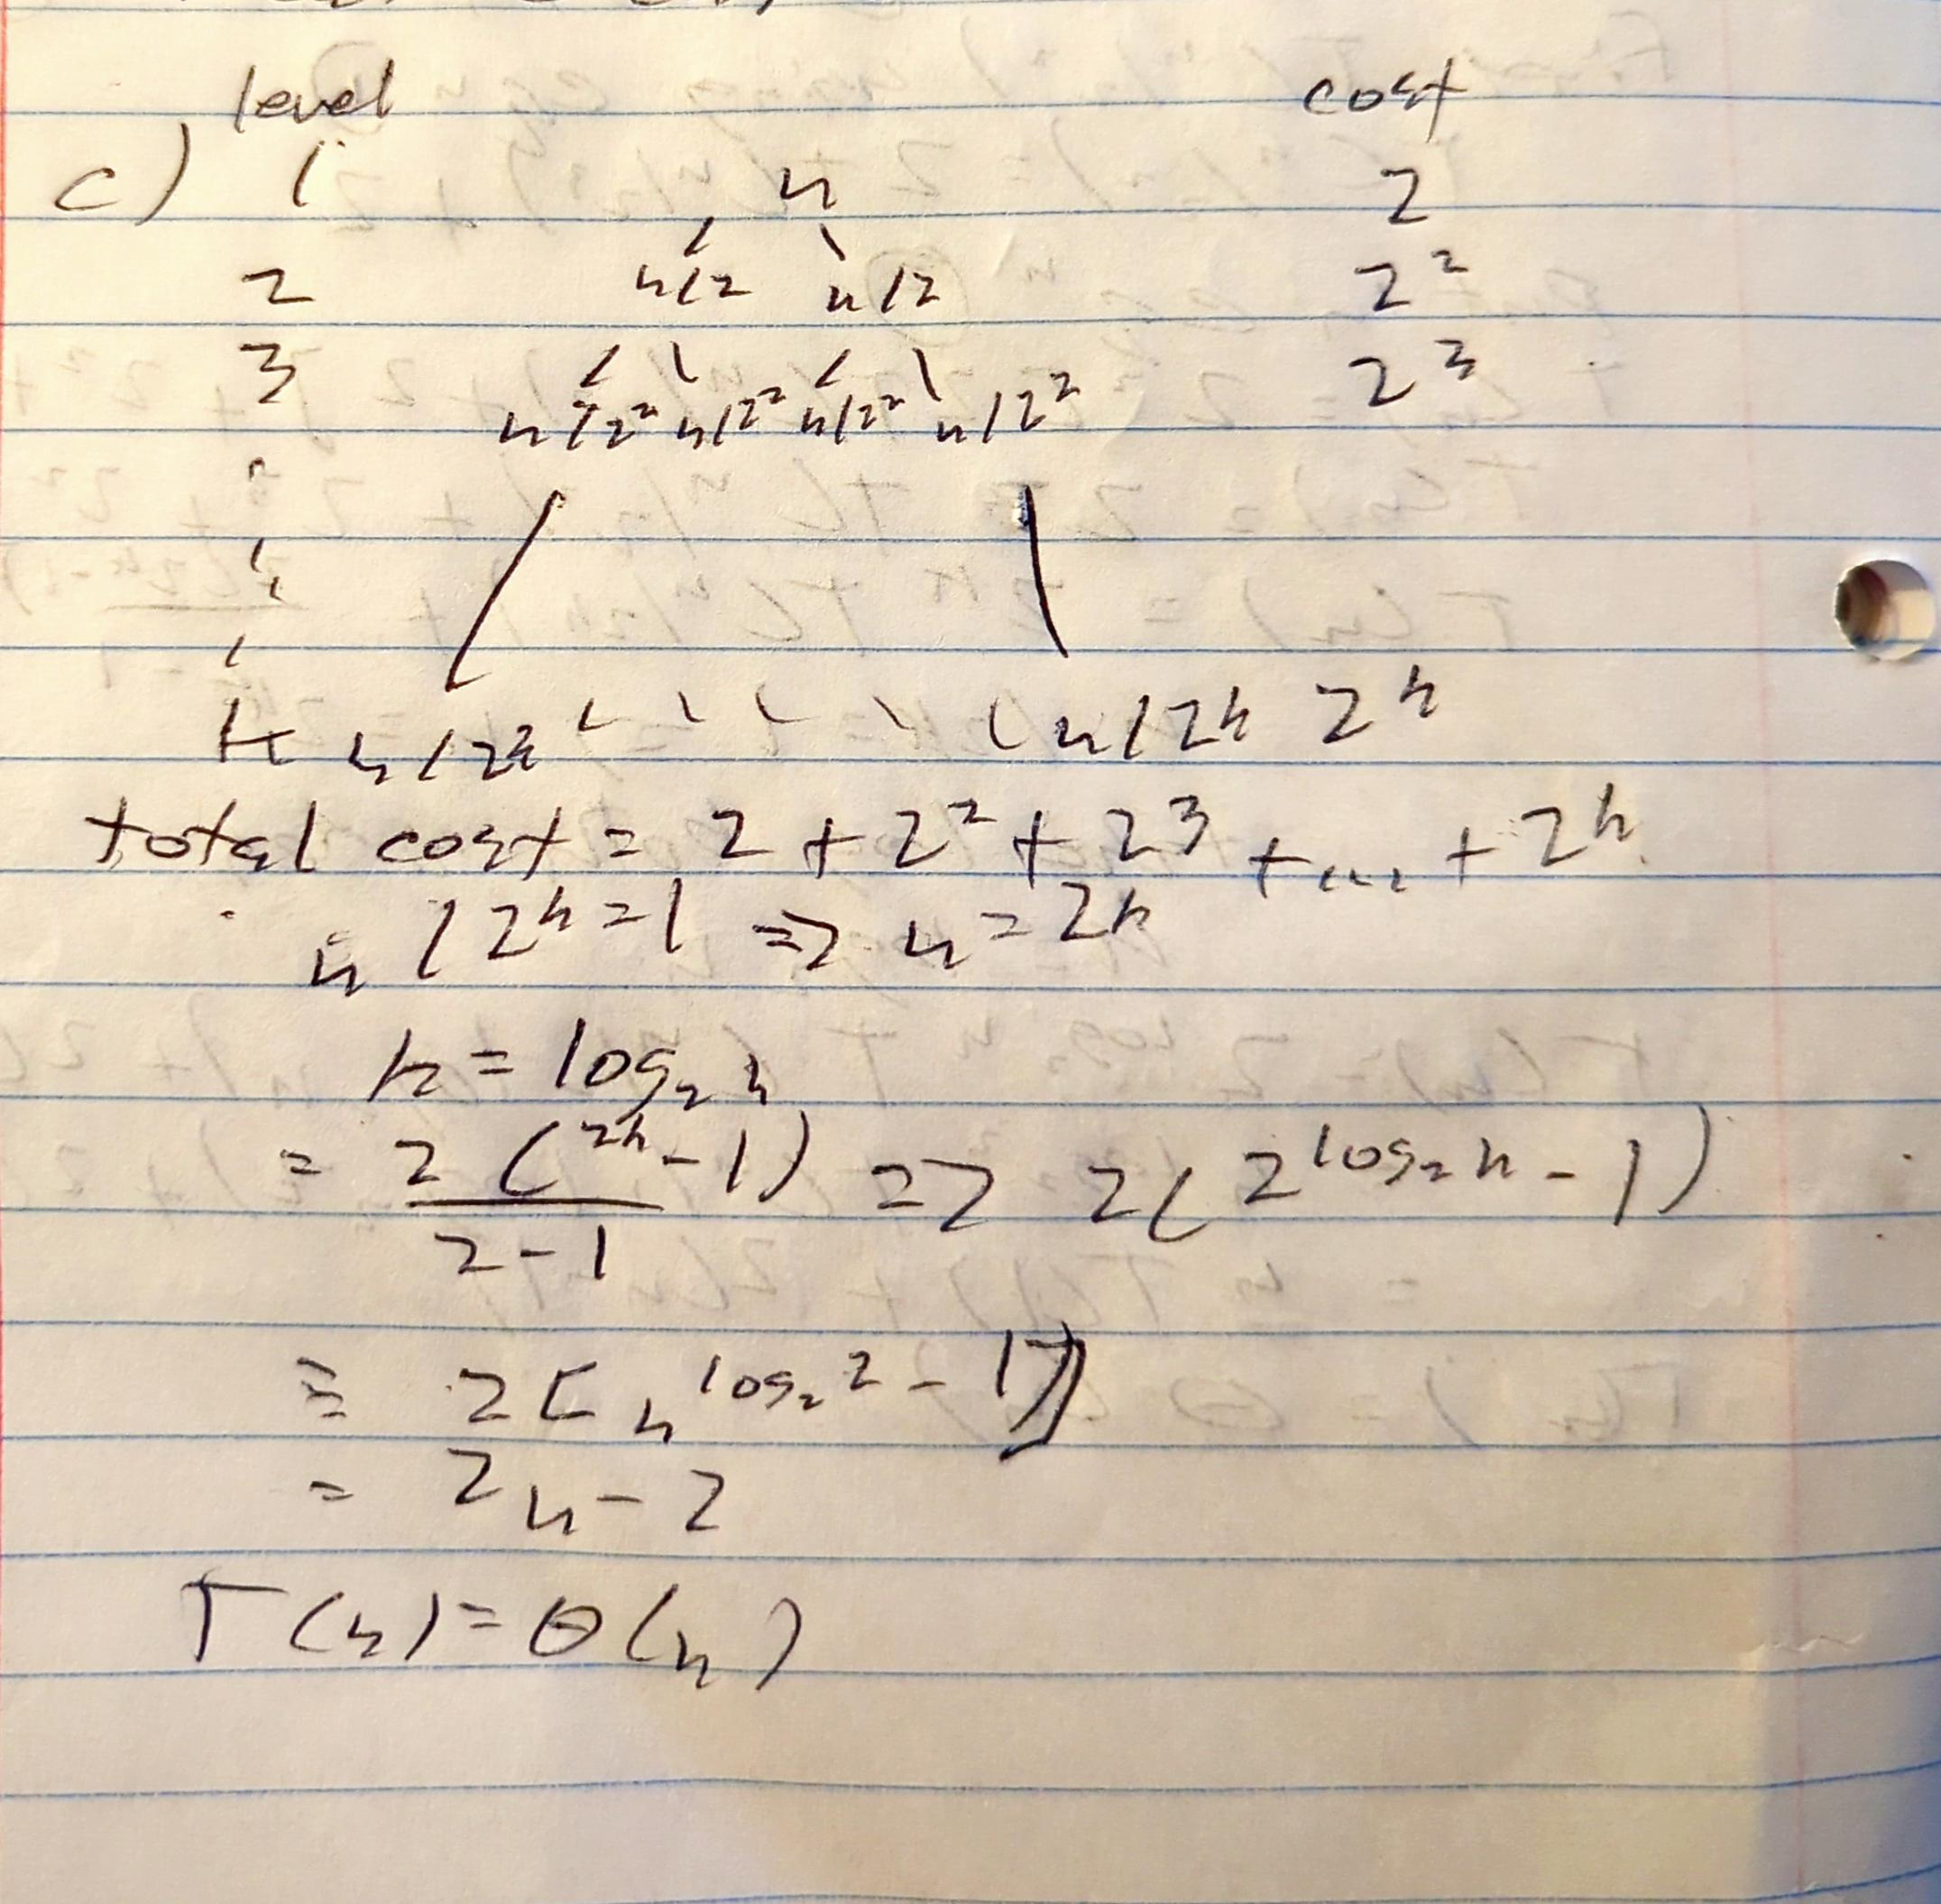 level cost
c) 1 n 2
2 n/2 n/2 2²
3 n/2² n/2² n/2² n/2² 2³
k n/2ᵏ n/2ᵏ 2ᵏ
total cost = 2 + 2² + 2³ + ... + 2ᵏ
n/2ᵏ = 1 => n = 2ᵏ
k = log₂n
= 2(2ᵏ - 1) / 2-1 => 2(2^log₂n - 1)
= 2[n^log₂2 - 1]
= 2n - 2
T(n) = θ(n)